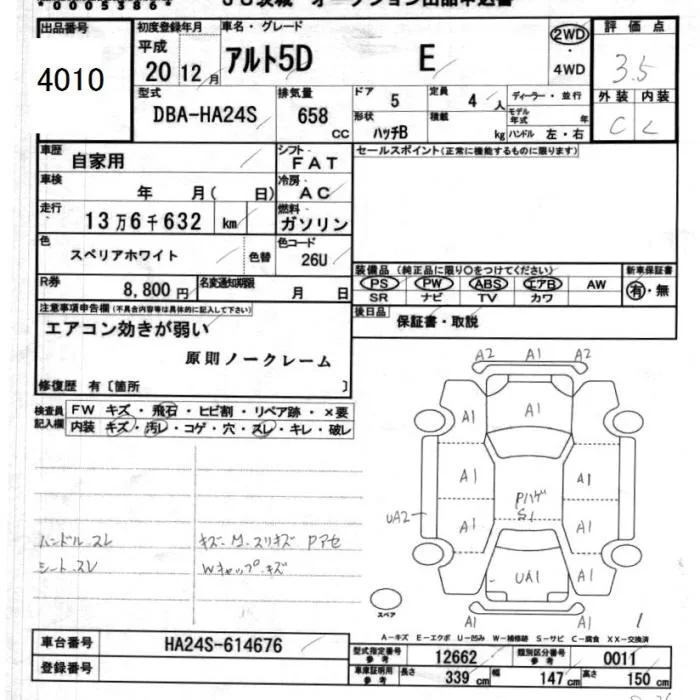 *0005386*
出品番号
4010
初度登録年月
平成
20 12月
車名・グレード
アルト5D E
2WD
・
4WD
評価点
3.5
外装 内装
C C
型式
DBA-HA24S
排気量
658
CC
ドア
5
形状
ハッチB
定員
4人
積載
kg
ディーラー・並行
モデル年式 年
ハンドル 左・右
車歴
自家用
シフト
FAT
車検
年 月( 日)
冷房
AC
走行
13万6千632 km
燃料
ガソリン
色
スペリアホワイト
色替
色コード
26U
R券
8,800円
名変通知期限
月 日
セールスポイント(正常に機能するものに限ります)
装備品 (純正品に限り○をつけてください)
PS PW ABS エアB AW
SR ナビ TV カワ
新車保証書
有・無
後日品
保証書・取説
注意事項申告欄(不具合内容等は具体的に記入して下さい)
エアコン効きが弱い
原則ノークレーム
修復歴 有〔箇所 〕
検査員
記入欄
FW キズ・飛石・ヒビ割・リペア跡・×要
内装 キズ・汚レ・コゲ・穴・スレ・キレ・破レ
ハンドル スレ
シート スレ
キズ・M・スリキズ Pアセ
Wキャップ・キズ
A2 A1 A2
A1 A1 A1
A1 A1
Pハゲ
S1
UA2 A1 A1
A1 UA1 A1
A1
スペア
A－キズ E－エクボ U－凹み W－補修跡 S－サビ C－腐食 XX－交換済
車台番号
HA24S-614676
登録番号
型式指定番号
参考
12662
類別区分番号
参考
0011
車庫証明用
参考
長さ 339 cm 幅 147 cm 高さ 150 cm